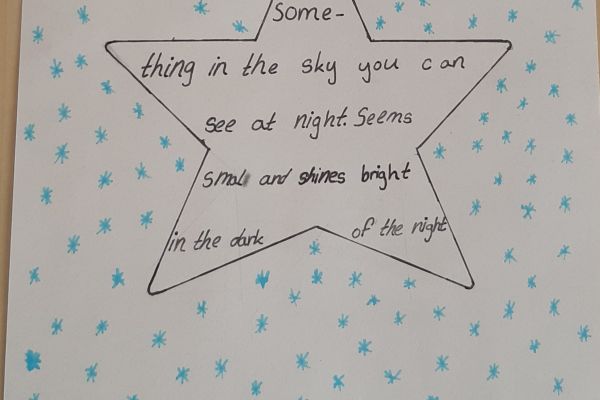 Some-
thing in the sky you can
see at night. Seems
small and shines bright
in the dark of the night